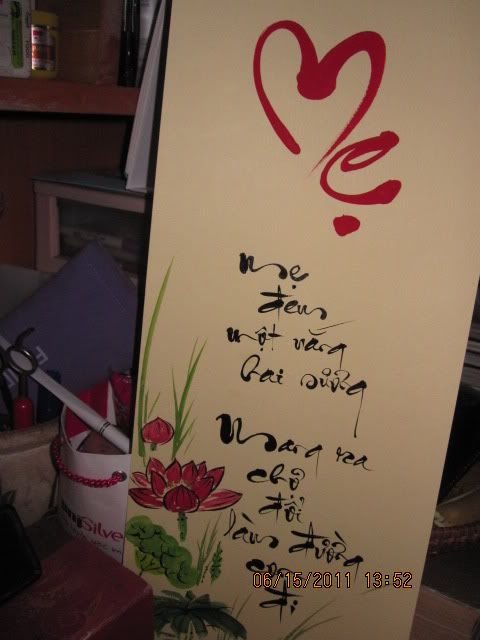 Mẹ
Mẹ
đem
một nắng
hai sương
Mang ra
chợ
đổi
làm đường
con
đi
Silve
06/15/2011 13:52